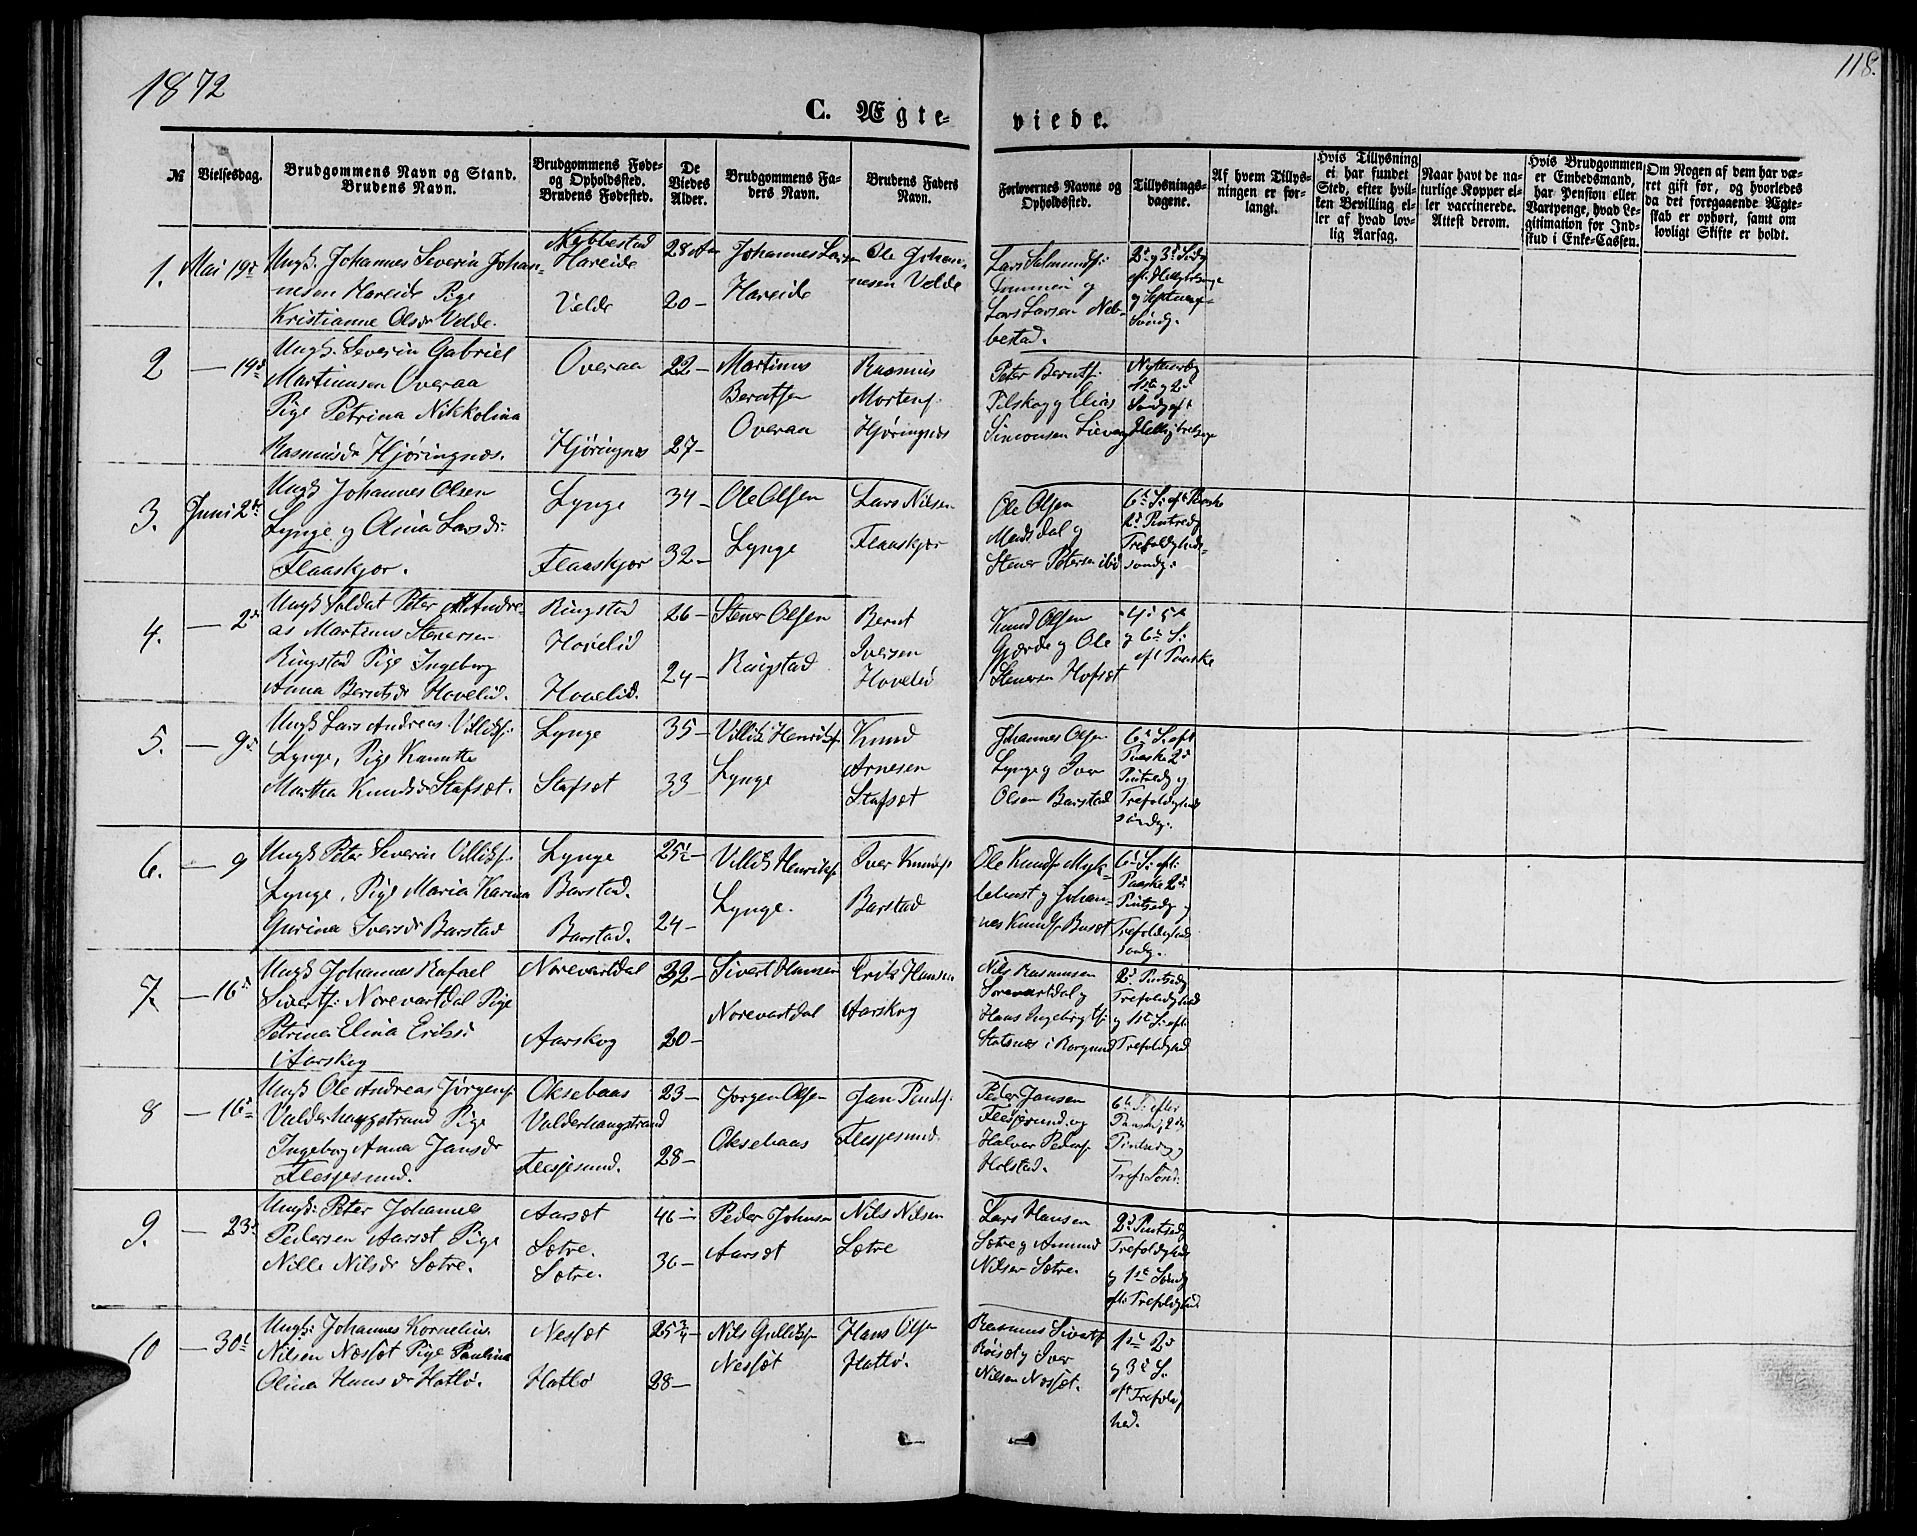 1872
118.
C. Ægte-
viede.
№
Vielsesdag.
Brudgommens Navn og Stand.
Brudens Navn.
Brudgommens Føde-
og Opholdssted.
Brudens Fødested.
De
Viedes
Alder.
Brudgommens Fa-
ders Navn.
Brudens Faders
Navn.
Forlovernes Navne og
Opholdssted.
Tillysnings-
dagene.
Af hvem Tillys-
ningen er for-
langt.
Hvis Tillysning
ei har fundet
Sted, efter hvil-
ken Bevilling el-
ler af hvad lov-
lig Aarsag.
Naar havt de na-
turlige Kopper el-
ler vaccinerede.
Attest derom.
Hvis Brudgommen
er Embedsmand,
har Pension eller
Vartpenge, hvad Le-
gitimation for Ind-
skud i Enke-Cassen.
Om Nogen af dem har væ-
ret gift før, og hvorledes
da det foregaaende Ægte-
skab er ophørt, samt om
lovligt Skifte er holdt.
1.
Mai 19de
Ungk. Johannes Severin Johan-
nesen Hareide Pige
Kristianne Olsdr Velde.
Nybbestad
Hareide
Velde
28 Aar
20 —
Johannes Larsen
Hareide
Ole Johan-
nesen Velde
Lars Salmundsf:
Timmen og
Lars Larsen Neb-
bestad.
2d og 3d Sødg
og Septuag.
Søndg.
2
— 19d
Ungk. Severin Gabriel
Martinusen Overaa
Pige Petrina Nikkolina
Rasmusdr Hjøringnæs.
Overaa
Hjøringnes
22 —
27 —
Martinus
Berntsen
Overaa
Rasmus
Mortens.
Hjøringnæs
Peter Berntsf:
Tilskog og Elias
Simonsen Lievaag
1ste og 2d
Søndg eft
3.
Juni 2den
Ungk Johannes Olsen
Lynge og Olina Larsdr
Flaaskjør.
Lynge
Flaaskjør
34 —
32 —
Ole Olsen
Lynge
Lars Nilsen
Flaaskjør
Ole Olsen
Mardsdal og
Stener Petersen ibid
6te S. eft Paaske
2d Pintsedg
Trefoldigheds-
søndg.
4.
— 2d
Ungk Soldat Peter Andre-
as Martinus Stenersen
Ringstad Pige Ingeborg
Anna Berntsdr Hovelid.
Ringstad
Hovelid
Hovelid.
26 —
24 —
Stener Olsen
Ringstad
Bernt
Iversen
Hovelid
Knud Olsen
Gjærde og Ole
Stenersen Hofsæt
4d 5te
og 6te S.
eft Paaske
5.
— 9d
Ungk Lars Andreas Villiksf.
Lynge, Pige Kanutte
Martha Knudsdr Stafsæt.
Lynge
Stafsæt
35 —
33 —
Villik Henriksf.
Lynge
Knud
Arnesen
Stafsæt
Johannes Olsen
Lynge og Iver
Olsen Barstad
6te S. eft
Paaske 2d
Pintsedg og
Trefoldigheds
søndg.
6.
— 9
Ungk Peter Severin Villiksf.
Lynge, Pige Maria Karina
Gurina Iversdr Barstad
Lynge
Barstad.
Barstad.
25½ —
24 —
Villik Henriksf.
Lynge.
Iver Knudsf
Barstad
Ole Knudsf Myk-
lebust og Johan-
nes Knudsf Busæt
6te S. eft.
Paaske 2d.
Pintsedg og
Trefoldigheds
søndg.
7.
— 16d
Ungk Johannes Rafael
Sivertsf: Norevartdal Pige
Petrina Elina Eriksdr
Aarskog
Norevartdal
Aarskog
32 —
20 —
Sivert Hansen
Norevartdal
Erik Hansen
Aarskog
Nils Rasmusen
Sørevartdal og
Hans Ingebrigtsf.
Slatsnes i Borgund
2d Pintsedg
Trefoldigheds
og 1ste S. eft.
Trefoldighed
8
— 16d
Ungk Ole Andreas Jørgensf.
Valderhaugstrand Pige
Ingeborg Anna Jansdr
Flesjesund.
Oksebaas
Valderhaugstrand
Flesjesund.
23 —
28 —
Jørgen Olsen
Oksebaas
Jan Pindsf.
Flesjesund.
Peder Jansen
Flesjesund og
Halvor Pedersf.
Holstad.
6te S. efter
Paaske, 2d
Pintsedg og
Tref. Sønd.
9.
— 23d
Ungk: Peter Johannes
Pedersen Aarsæt Pige
Nille Nilsdr Sætre.
Aarsæt
Sætre.
Sætre.
46 —
36 —
Peder Johnsen
Aarsæt
Nils Nilsen
Sætre
Lars Hansen
Sætre og Amund
Nilsen Sætre.
2d Pintsedg
Trefoldigheds
og 1ste Søndg
eft. Trefoldighed.
10
— 30te
Ungk: Johannes Kornelius
Nilsen Næssæt Pige Paulina
Olina Hansdr Hatlø.
Nessæt
Hatlø
25¾ —
28 —
Nils Gulliksf
Nessæt
Hans Olsen
Hatlø.
Rasmus Sivertsf
Røisæt og Iver
Nilsen Næssæt.
1ste 2d
og 3d S.
eft Trefoldig-
hed.